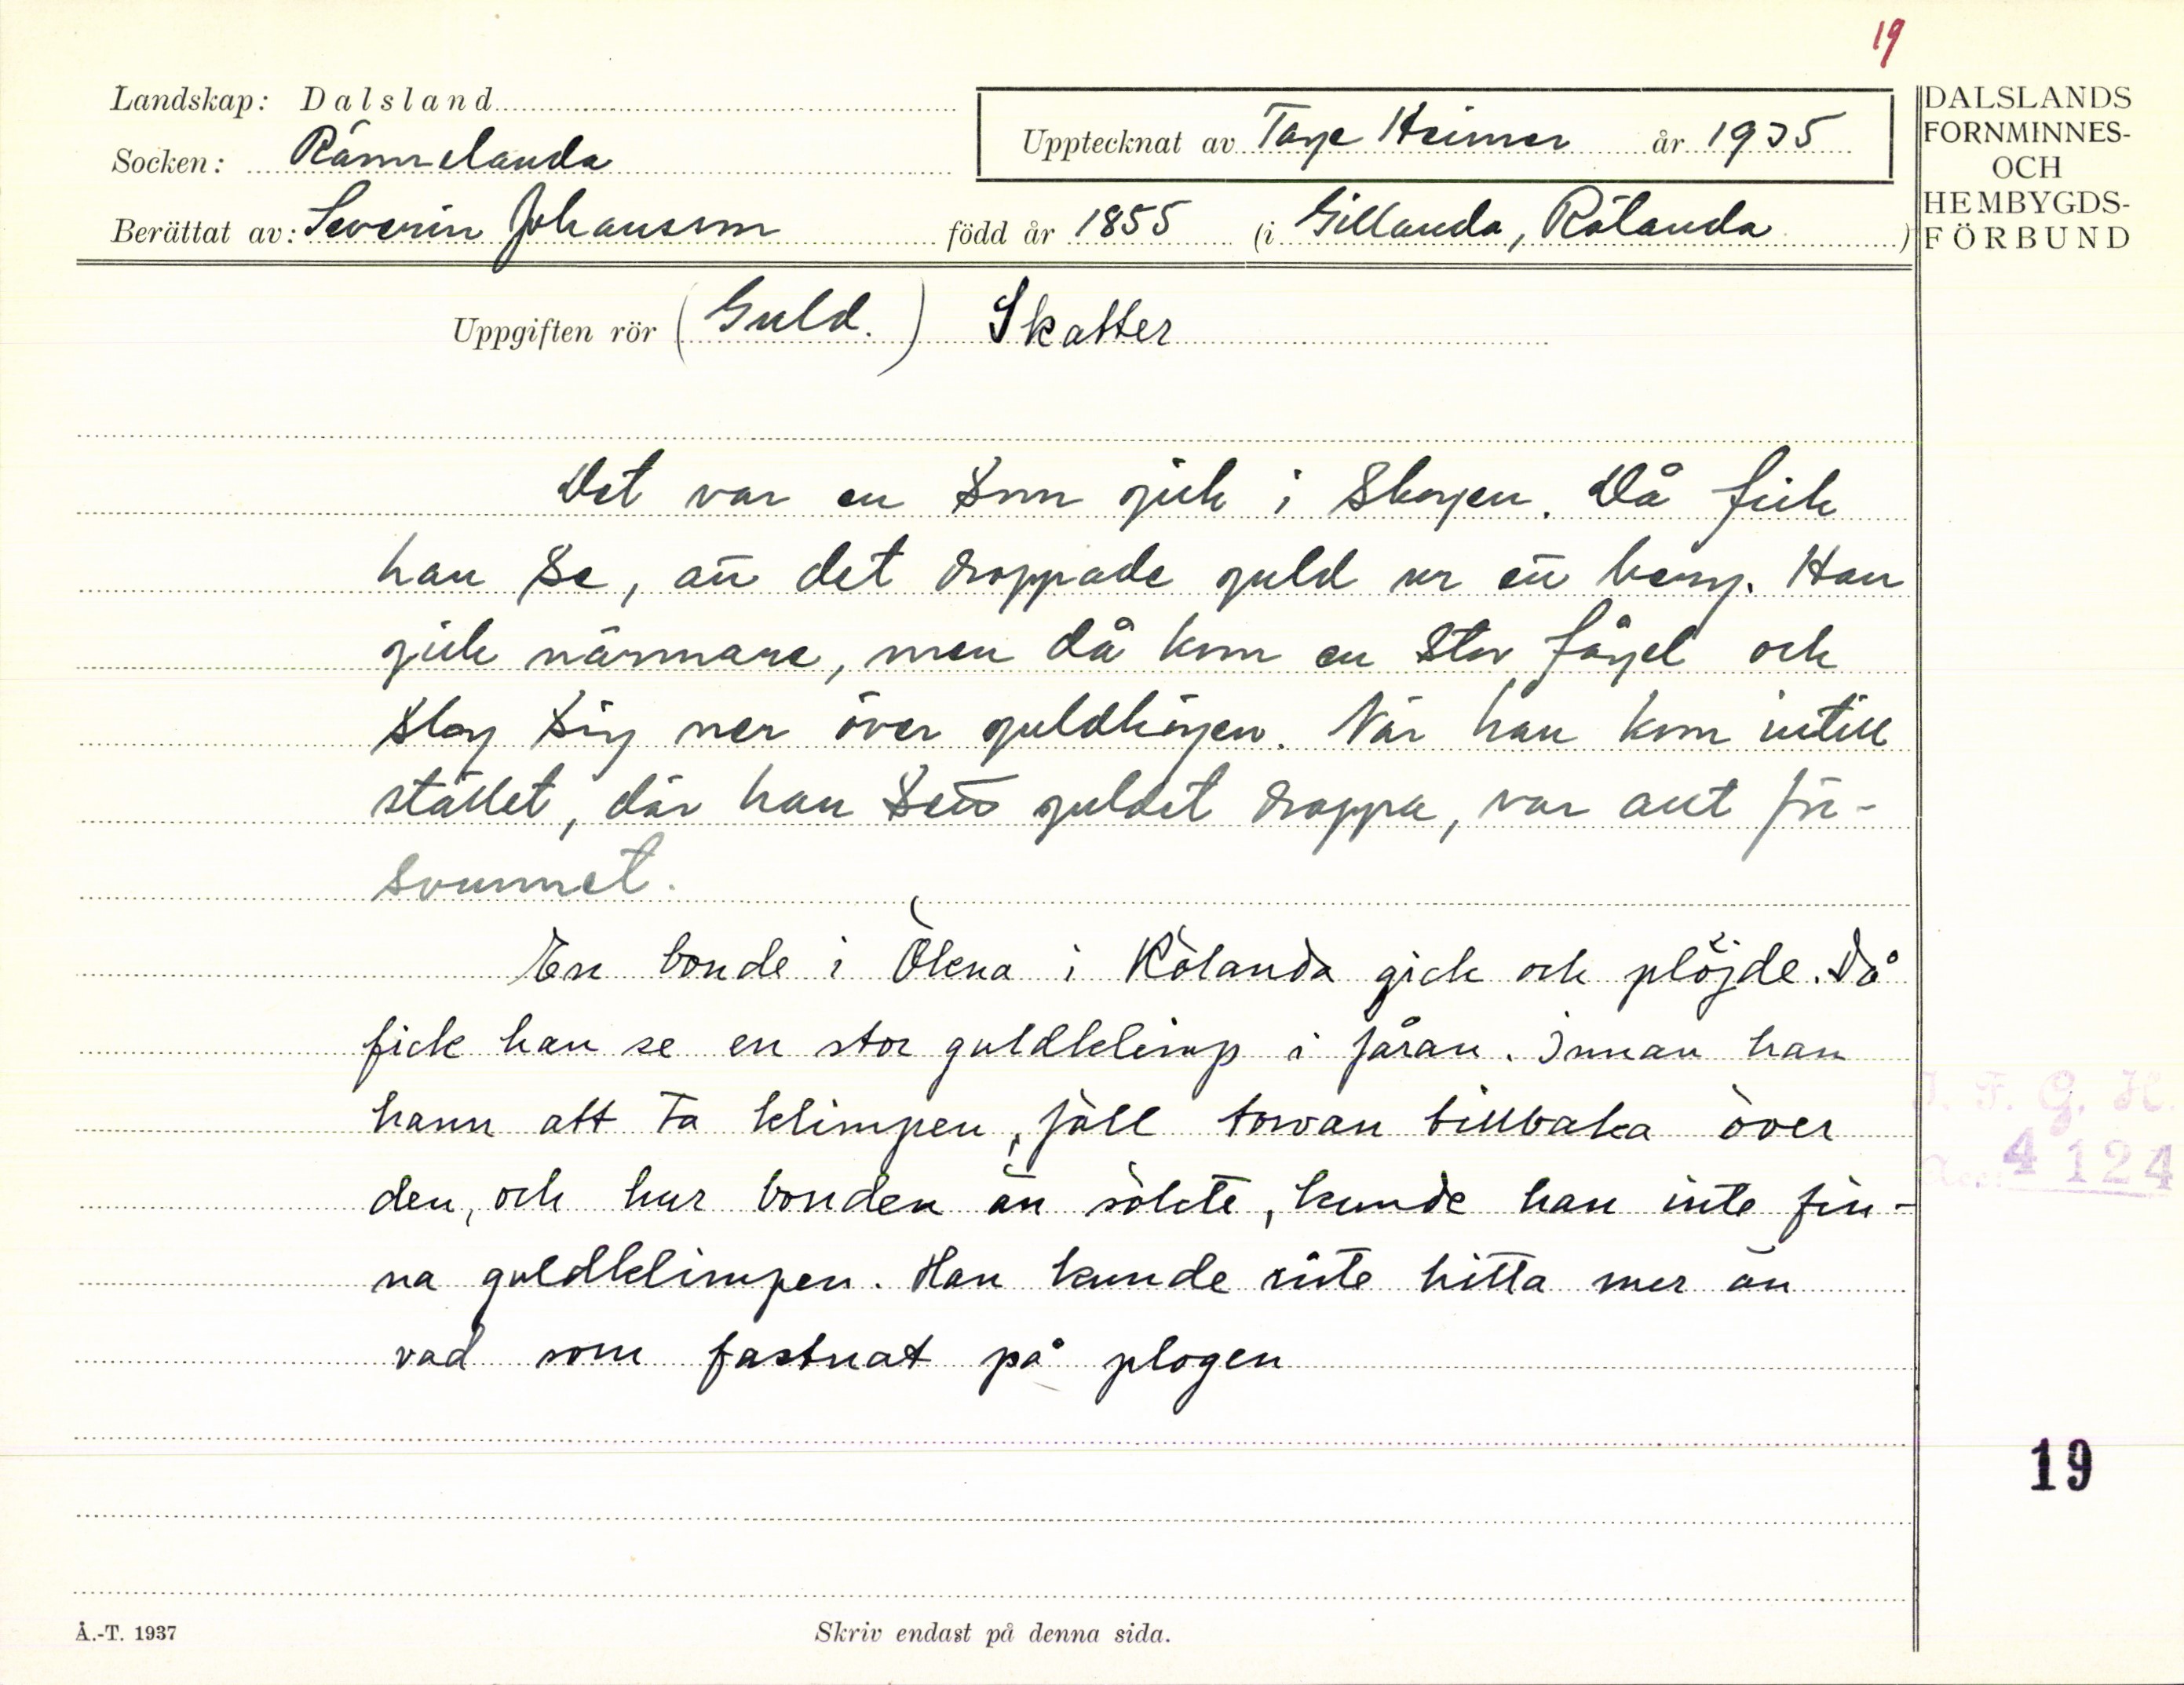 19
Landskap: Dalsland
Socken: Rännelanda
Upptecknat av Tage Heimer år 1935
Berättat av: Severin Johansson född år 1855 (i Gillanda, Rölanda)
DALSLANDS
FORNMINNES-
OCH
HEMBYGDS-
FÖRBUND
Uppgiften rör (Guld.) Skatter
Det var en som gick i skogen. Då fick
han se, att det droppade guld ur ett berg. Han
gick närmare, men då kom en stor fågel och
slog sig ner över guldhögen. När han kom intill
stället, där han sett guldet droppa, var allt för-
svunnet.
En bonde i Ökna i Rölanda gick och plöjde. Då
fick han se en stor guldklimp i fåran. Innan han
hann att ta klimpen, föll torvan tillbaka över
den, och hur bonden än sökte, kunde han inte fin-
na guldklimpen. Han kunde inte hitta mer än
vad som fastnat på plogen
I. F. G. H.
Acc. 4124
19
Å.-T. 1937
Skriv endast på denna sida.